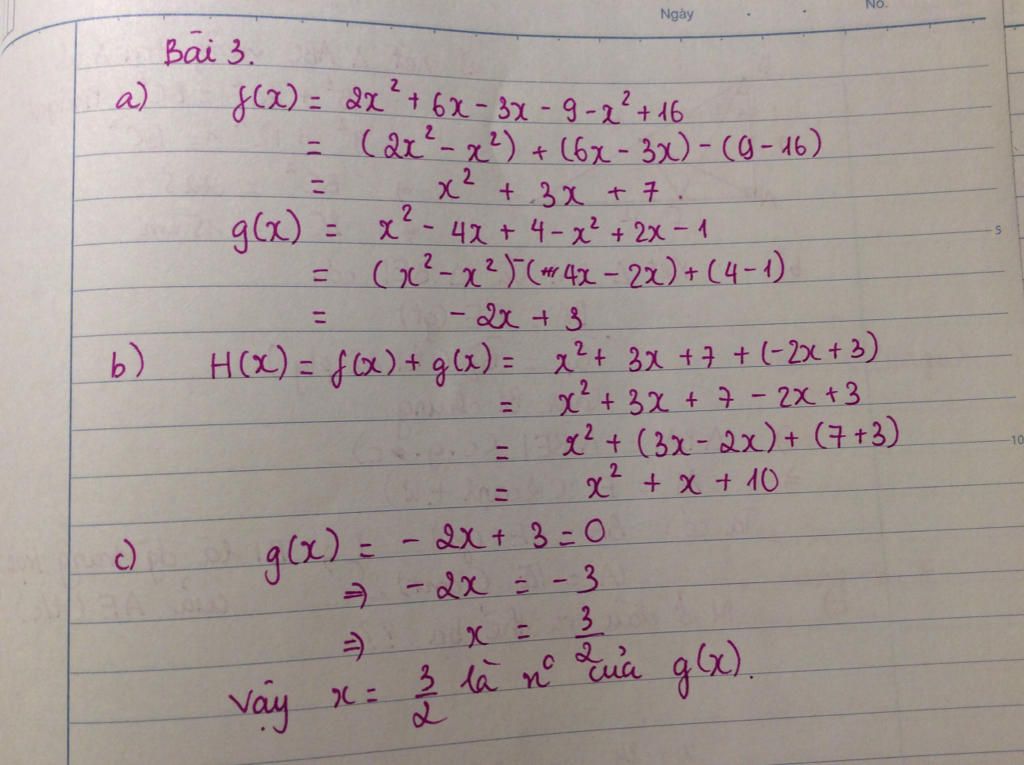 Ngày
No.
Bài 3.
a) f(x) = 2x² + 6x - 3x - 9 - x² + 16
= (2x² - x²) + (6x - 3x) - (9 - 16)
= x² + 3x + 7.
g(x) = x² - 4x + 4 - x² + 2x - 1
5
= (x² - x²) - (4x - 2x) + (4 - 1)
= - 2x + 3
b) H(x) = f(x) + g(x) = x² + 3x + 7 + (-2x + 3)
= x² + 3x + 7 - 2x + 3
= x² + (3x - 2x) + (7 + 3)
10
= x² + x + 10
c) g(x) = - 2x + 3 = 0
⇒ - 2x = - 3
⇒ x = 3/2
Vậy x = 3/2 là n° của g(x).